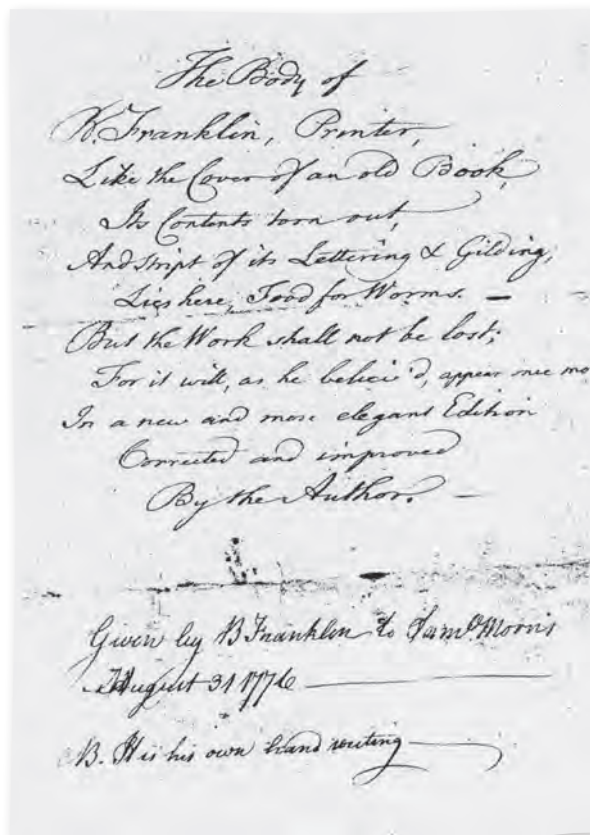 The Body of
B. Franklin, Printer,
Like the Cover of an old Book,
Its Contents torn out,
And stript of its Lettering & Gilding,
Lies here, Food for Worms. —
But the Work shall not be lost;
For it will, as he believ'd, appear once mo
In a new and more elegant Edition
Corrected and improved
By the Author. —
Given by B Franklin to Saml Morris
August 31 1776
B. It is his own hand writing